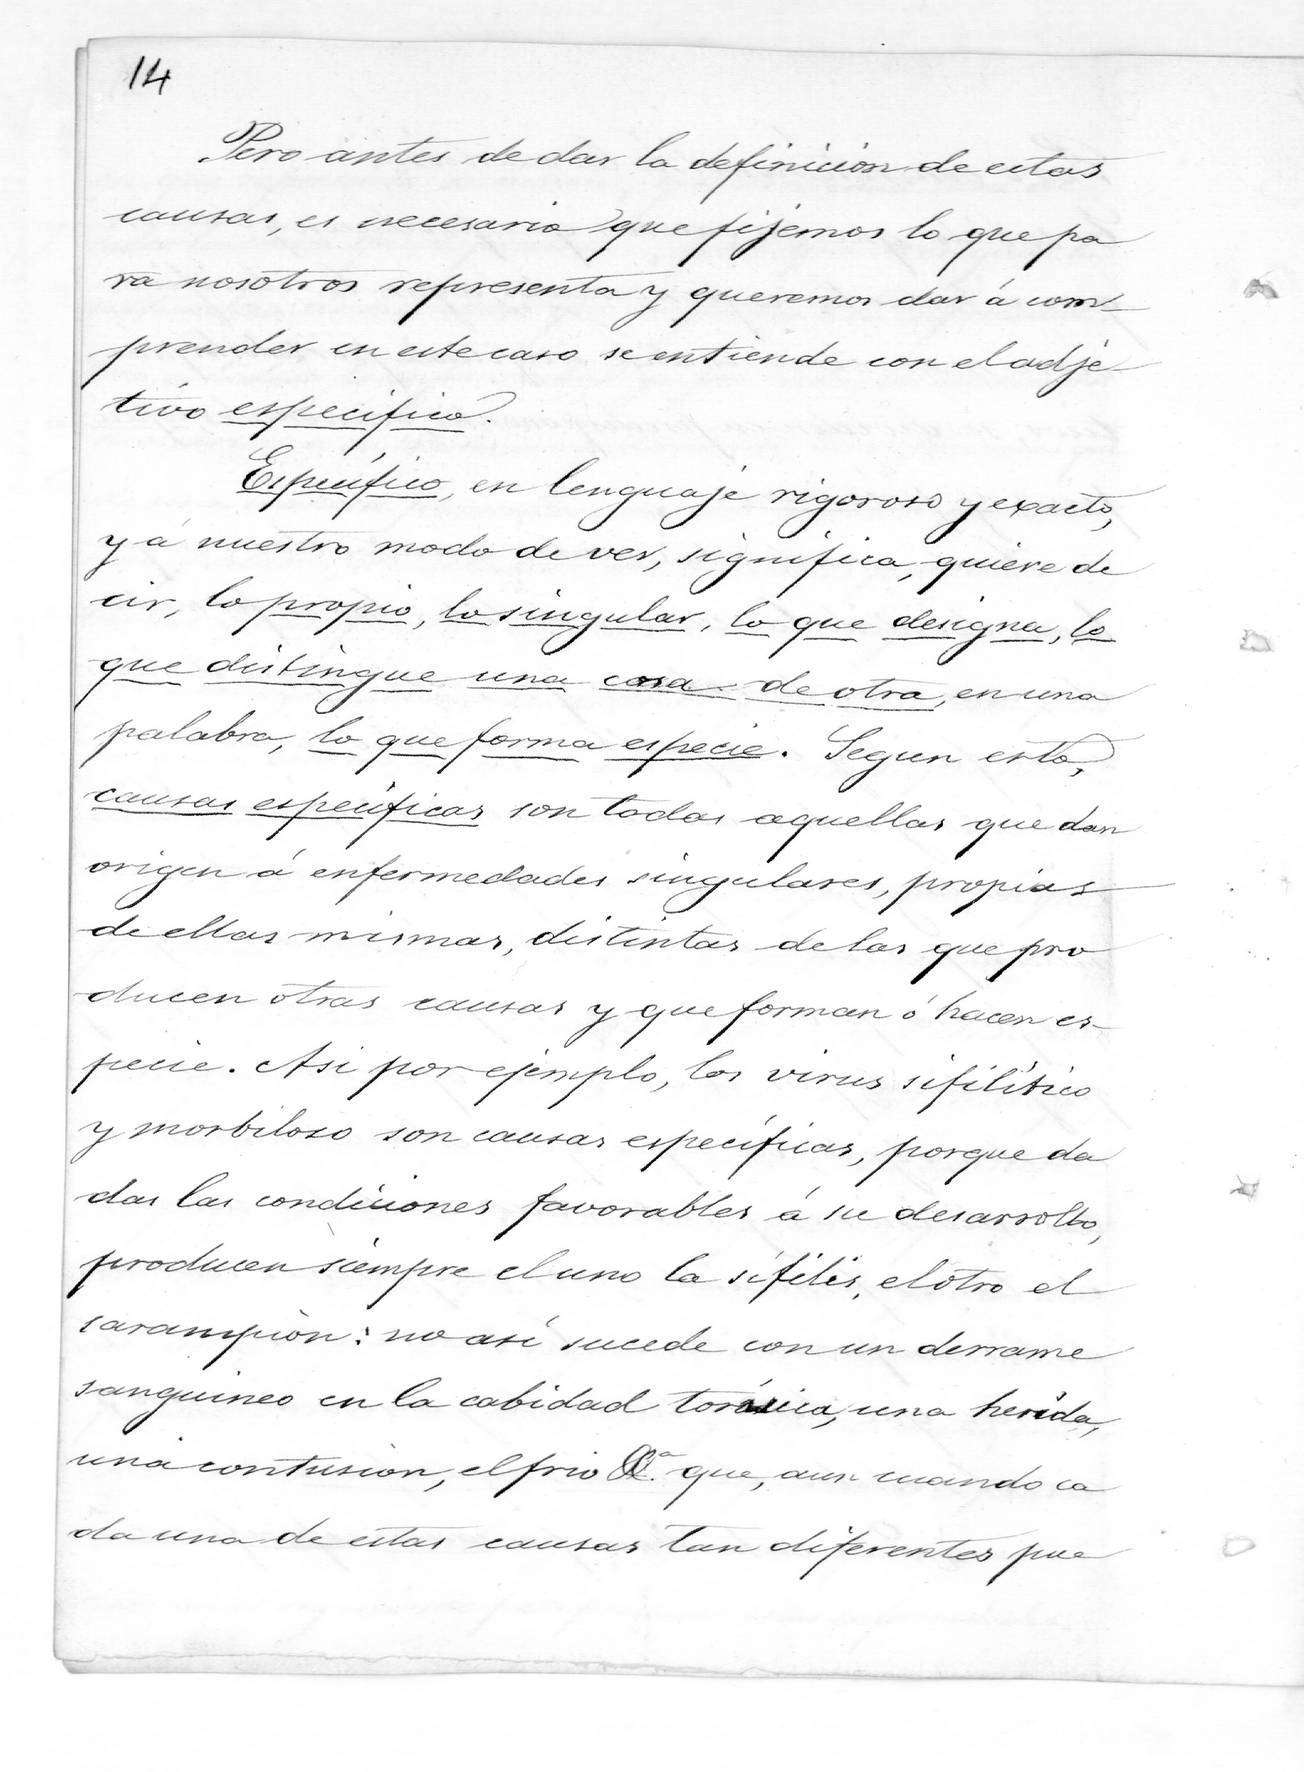 14
Pero antes de dar la definicion de estas
causas, es necesario que fijemos lo que pa
ra nosotros representa y queremos dar á com-
prender en este caso se entiende con el adje
tivo especifico.
Específico, en lenguaje rigoroso y exacto,
y á nuestro modo de ver, significa, quiere de
cir, lo propio, lo singular, lo que designa, lo
que distingue una cosa de otra, en una
palabra, lo que forma especie. Segun esto,
causas específicas son todas aquellas que dan
origen á enfermedades singulares, propias
de ellas mismas, distintas de las que pro
ducen otras causas y que forman ó hacen es-
pecie. Asi por ejemplo, los virus sifilítico
y morbiloso son causas específicas, porque da
das las condiciones favorables á su desarrollo,
producen siempre el uno la sífilis, el otro el
sarampion: no así sucede con un derrame
sanguineo en la cabidad torácica, una herida,
una contusion, el frio &.ª que, aun cuando ca
da una de estas causas tan diferentes pue